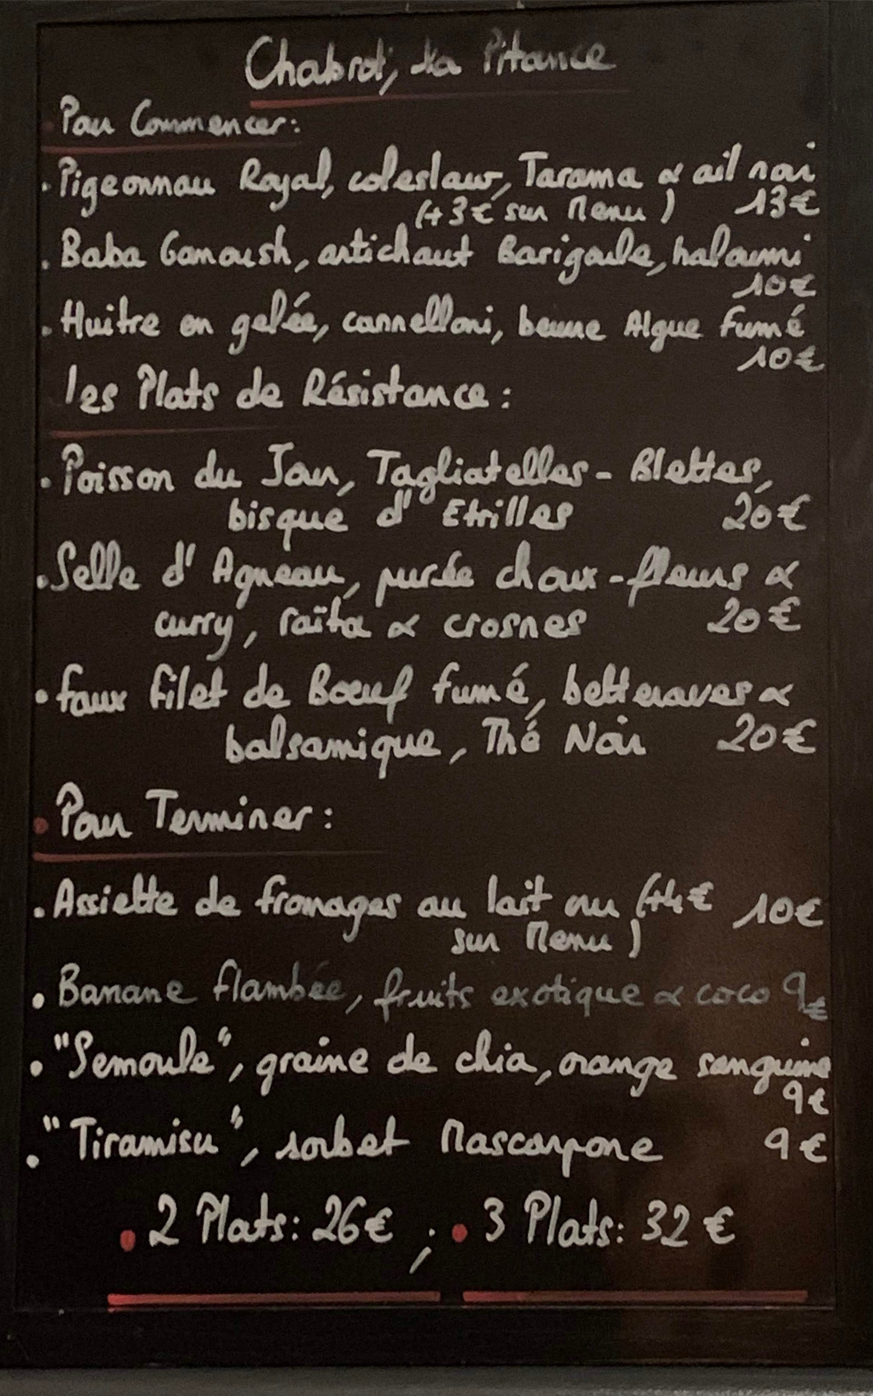 Chabrot, La Pitance
Pour Commencer:
. Pigeonneau Royal, coleslaw, Tarama & ail noir
(+3€ sur Menu) 13€
. Baba Ganoush, artichaut Barigoule, haloumi
10€
. Huitre en gelée, cannelloni, beurre Algue fumé
10€
les Plats de Résistance :
. Poisson du Jour, Tagliatelles - Blettes,
bisque d' Etrilles 20€
. Selle d' Agneau, purée choux-fleurs &
curry, raïta & crosnes 20€
. faux filet de Boeuf fumé, betteraves &
balsamique, Thé Noir 20€
. Pour Terminer :
. Assiette de fromages au lait cru (+4€ 10€
sur Menu)
. Banane flambée, fruits exotique & coco 9€
. "Semoule", graine de chia, orange sanguine
9€
. "Tiramisu", sorbet Mascarpone 9€
. 2 Plats: 26€ ; . 3 Plats: 32€